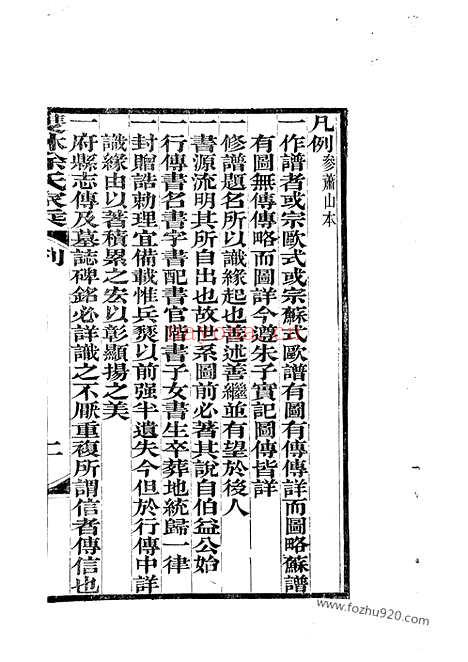 凡例參蕭山本
一作譜者或宗歐式或宗蘇式歐譜有圖有傳傳詳而圖略蘇譜
有圖無傳傳略而圖詳今遵朱子實記圖傳皆詳
一修譜題名所以識緣起也善述善繼並有望於後人
一書源流明其所自出也故世系圖前必著其說自伯益公始
一行傳書名書字書配書官階書子女書生卒葬地統歸一律
封贈誥勅理宜備載惟兵燹以前强半遺失今但於行傳中詳
識緣由以著積累之宏以彰顯揚之美
一府縣志傳及墓誌碑銘必詳識之不厭重複所謂信者傳信也
雙林徐氏家乘
例
www.fozhu920.com